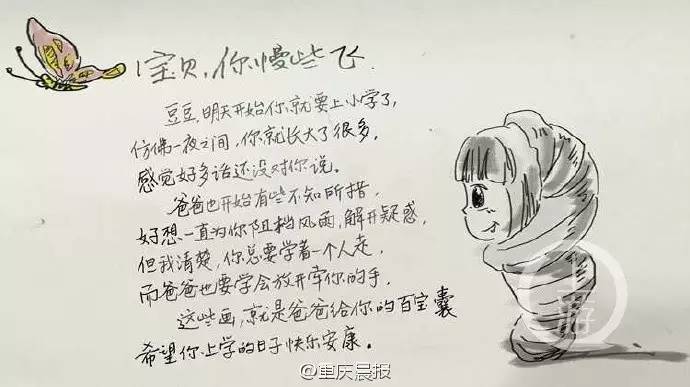 宝贝,你慢些飞
豆豆,明天开始你就要上小学了,
仿佛一夜之间,你就长大了很多,
感觉好多话还没对你说。
爸爸也开始有些不知所措,
好想一直为你阻挡风雨,解开疑惑,
但我清楚,你总要学着一个人走,
而爸爸也要学会放开牵你的手,
这些画,就是爸爸给你的百宝囊
希望你上学的日子快乐安康。
上游
@重庆晨报